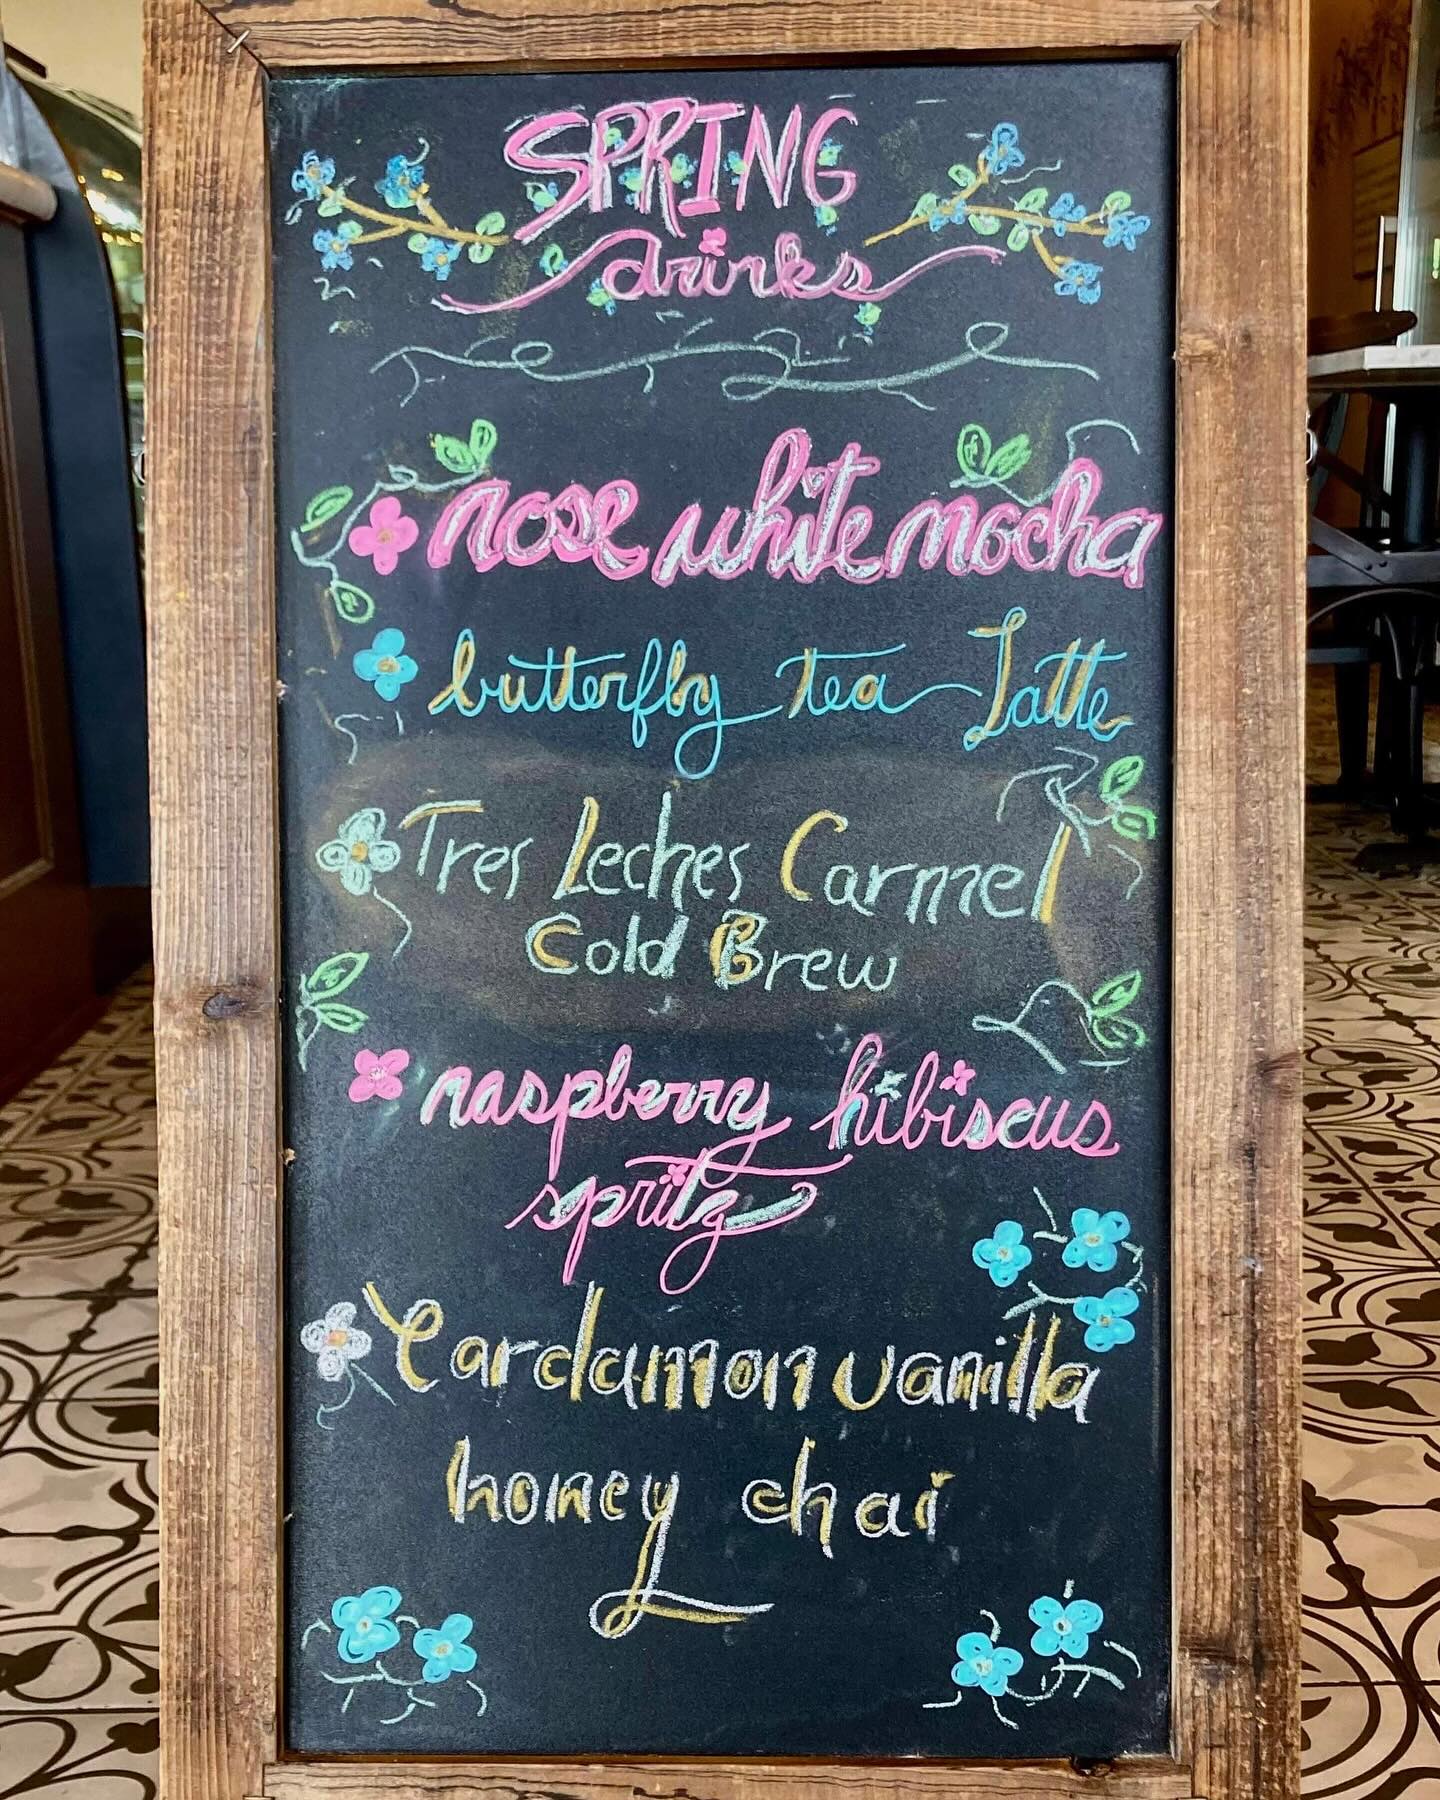 SPRING
drinks
rose white mocha
butterfly tea Latte
Tres Leches Carmel
Cold Brew
raspberry hibiscus
spritz
Cardamon vanilla
honey chai